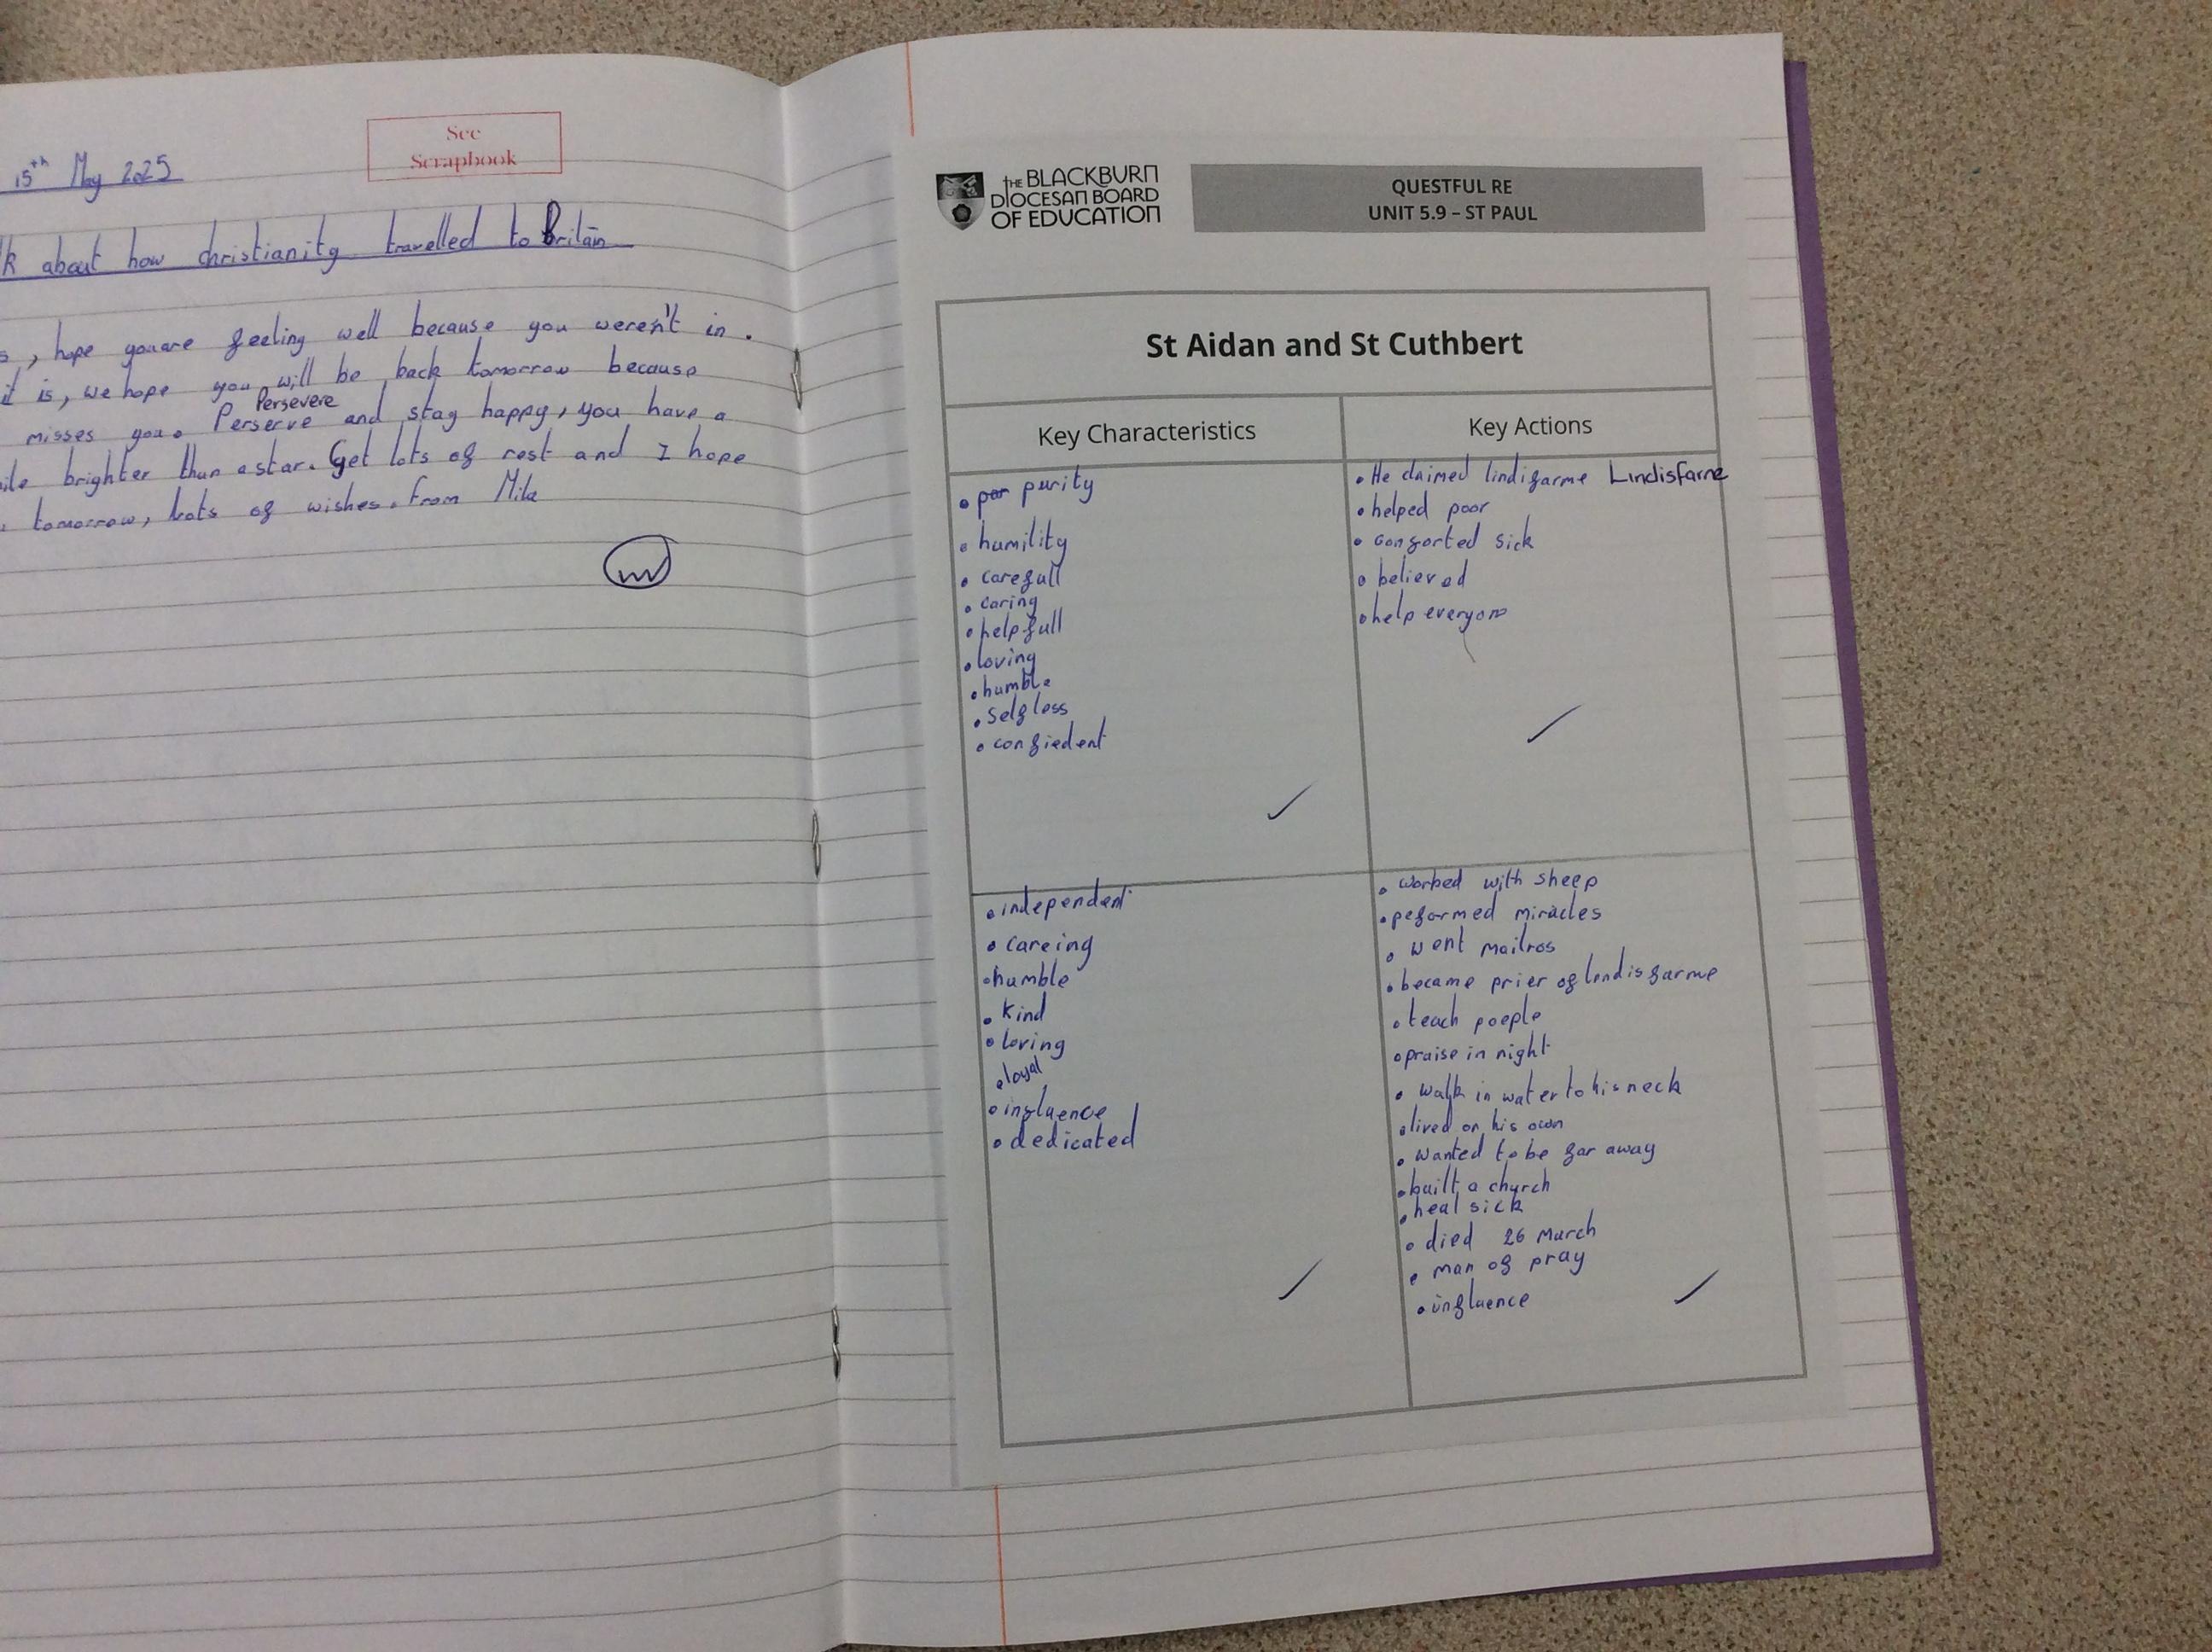 See
Scrapbook
15th May 2025
k about how christianity travelled to Britain
s, hope you are feeling well because you weren't in.
it is, we hope you will be back tomorrow because
Persevere
misses you. Perserve and stay happy, you have a
ile brighter than a star. Get lots of rest and I hope
tomorrow, lots of wishes. From Mila
THE BLACKBURN
DIOCESAN BOARD
OF EDUCATION
QUESTFUL RE
UNIT 5.9 – ST PAUL
St Aidan and St Cuthbert
Key Characteristics
Key Actions
• purity
• humility
• carefull
• caring
• helpfull
• loving
• humble
• selfless
• confiedent
• He claimed lindifarme Lindisfarne
• helped poor
• conforted sick
• believed
• help everyone
• independent
• careing
• humble
• kind
• loving
• loyal
• influence
• dedicated
• worked with sheep
• peformed miracles
• went mailros
• became prier of lindisfarme
• teach poeple
• praise in night
• walk in water to his neck
• lived on his own
• wanted to be far away
• built a church
• heal sick
• died 26 March
• man of pray
• influence